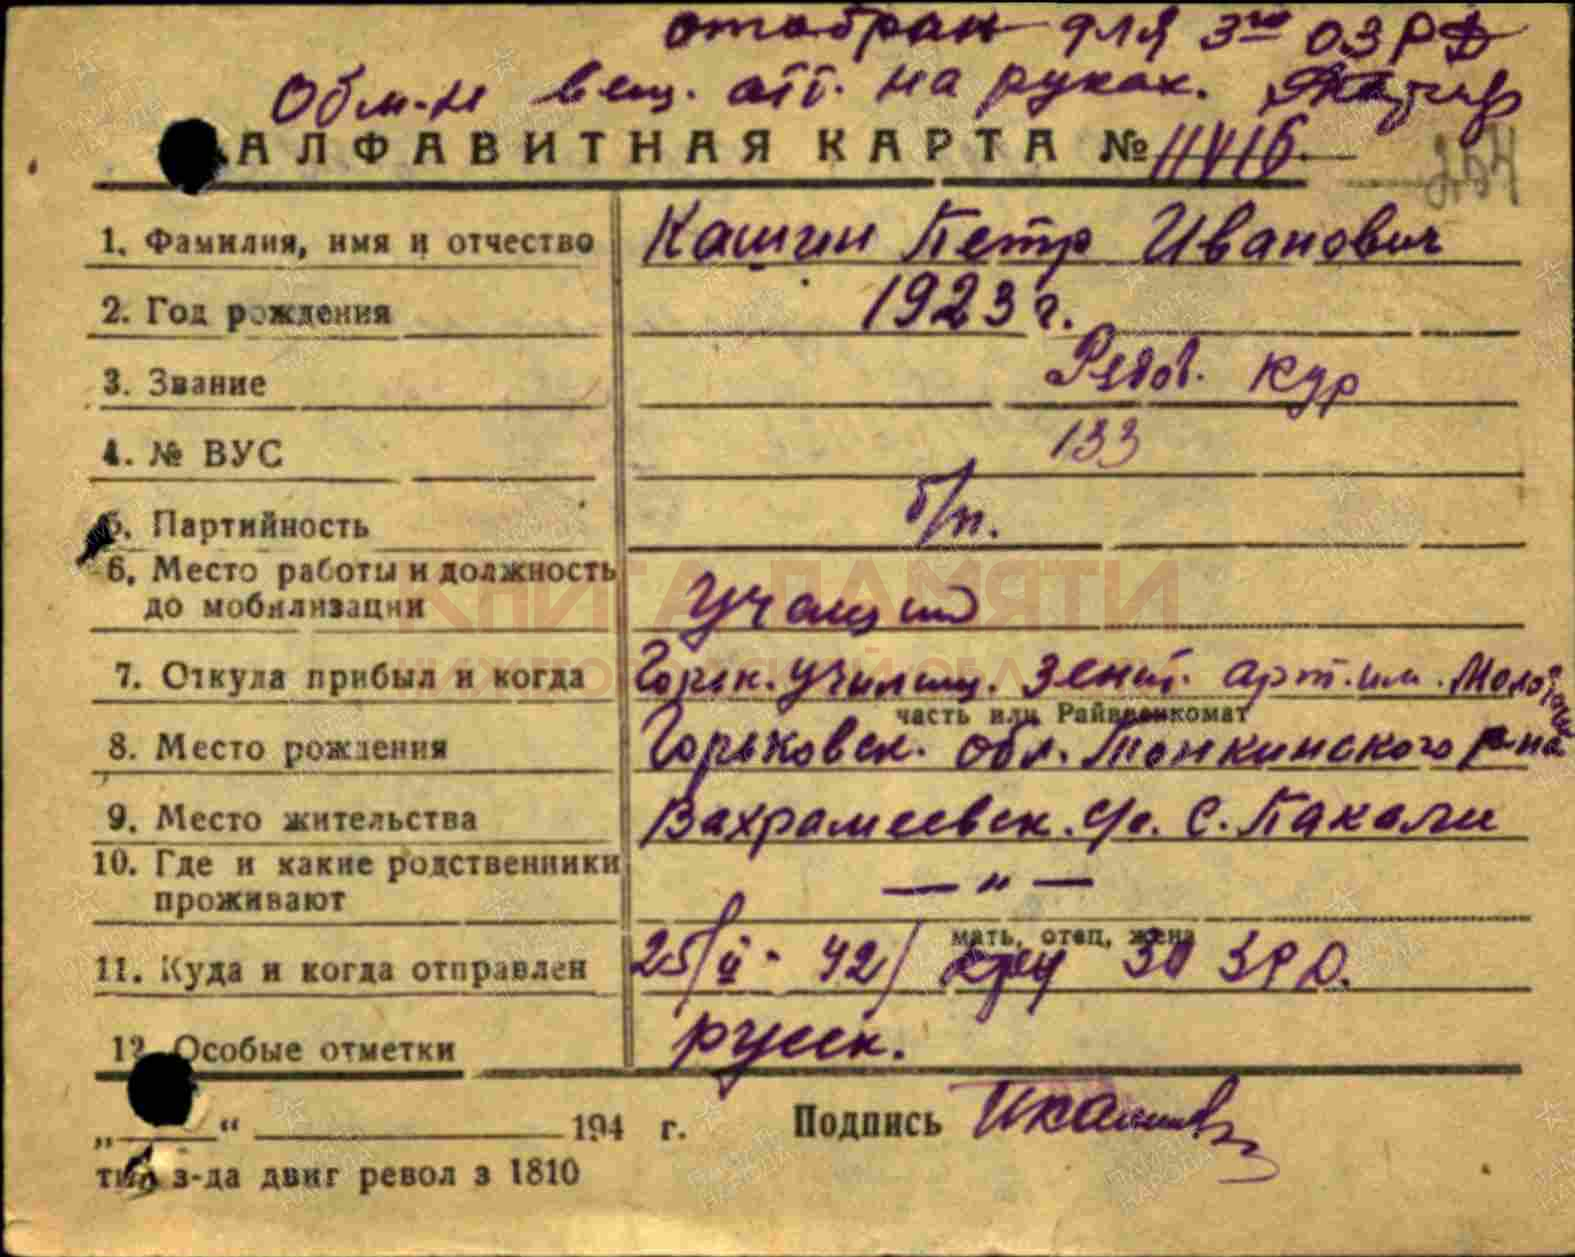 отобран для 3го ОЗРД
Обм-н вещ. атт. на руках.
АЛФАВИТНАЯ КАРТА №
254
1. Фамилия, имя и отчество Кашин Петр Иванович
2. Год рождения 1923 г.
3. Звание Рядов. кур
4. № ВУС 133
5. Партийность б/п.
6. Место работы и должность
до мобилизации Учащий
7. Откуда прибыл и когда Горьк. училищ. Зенит. арт. им. Молотова
часть или Райвоенкомат
8. Место рождения Горьковск. обл. Тонкинского р-на
9. Место жительства Вахрамеевск. с/с. с. Пакали
10. Где и какие родственники
проживают — " —
мать, отец, жена
11. Куда и когда отправлен 25/II - 42/ 30 ЗРД.
12. Особые отметки русск.
„ “ 194 г. Подпись
тип з-да двиг револ з 1810
КНИГА ПАМЯТИ
НИЖЕГОРОДСКОЙ ОБЛАСТИ